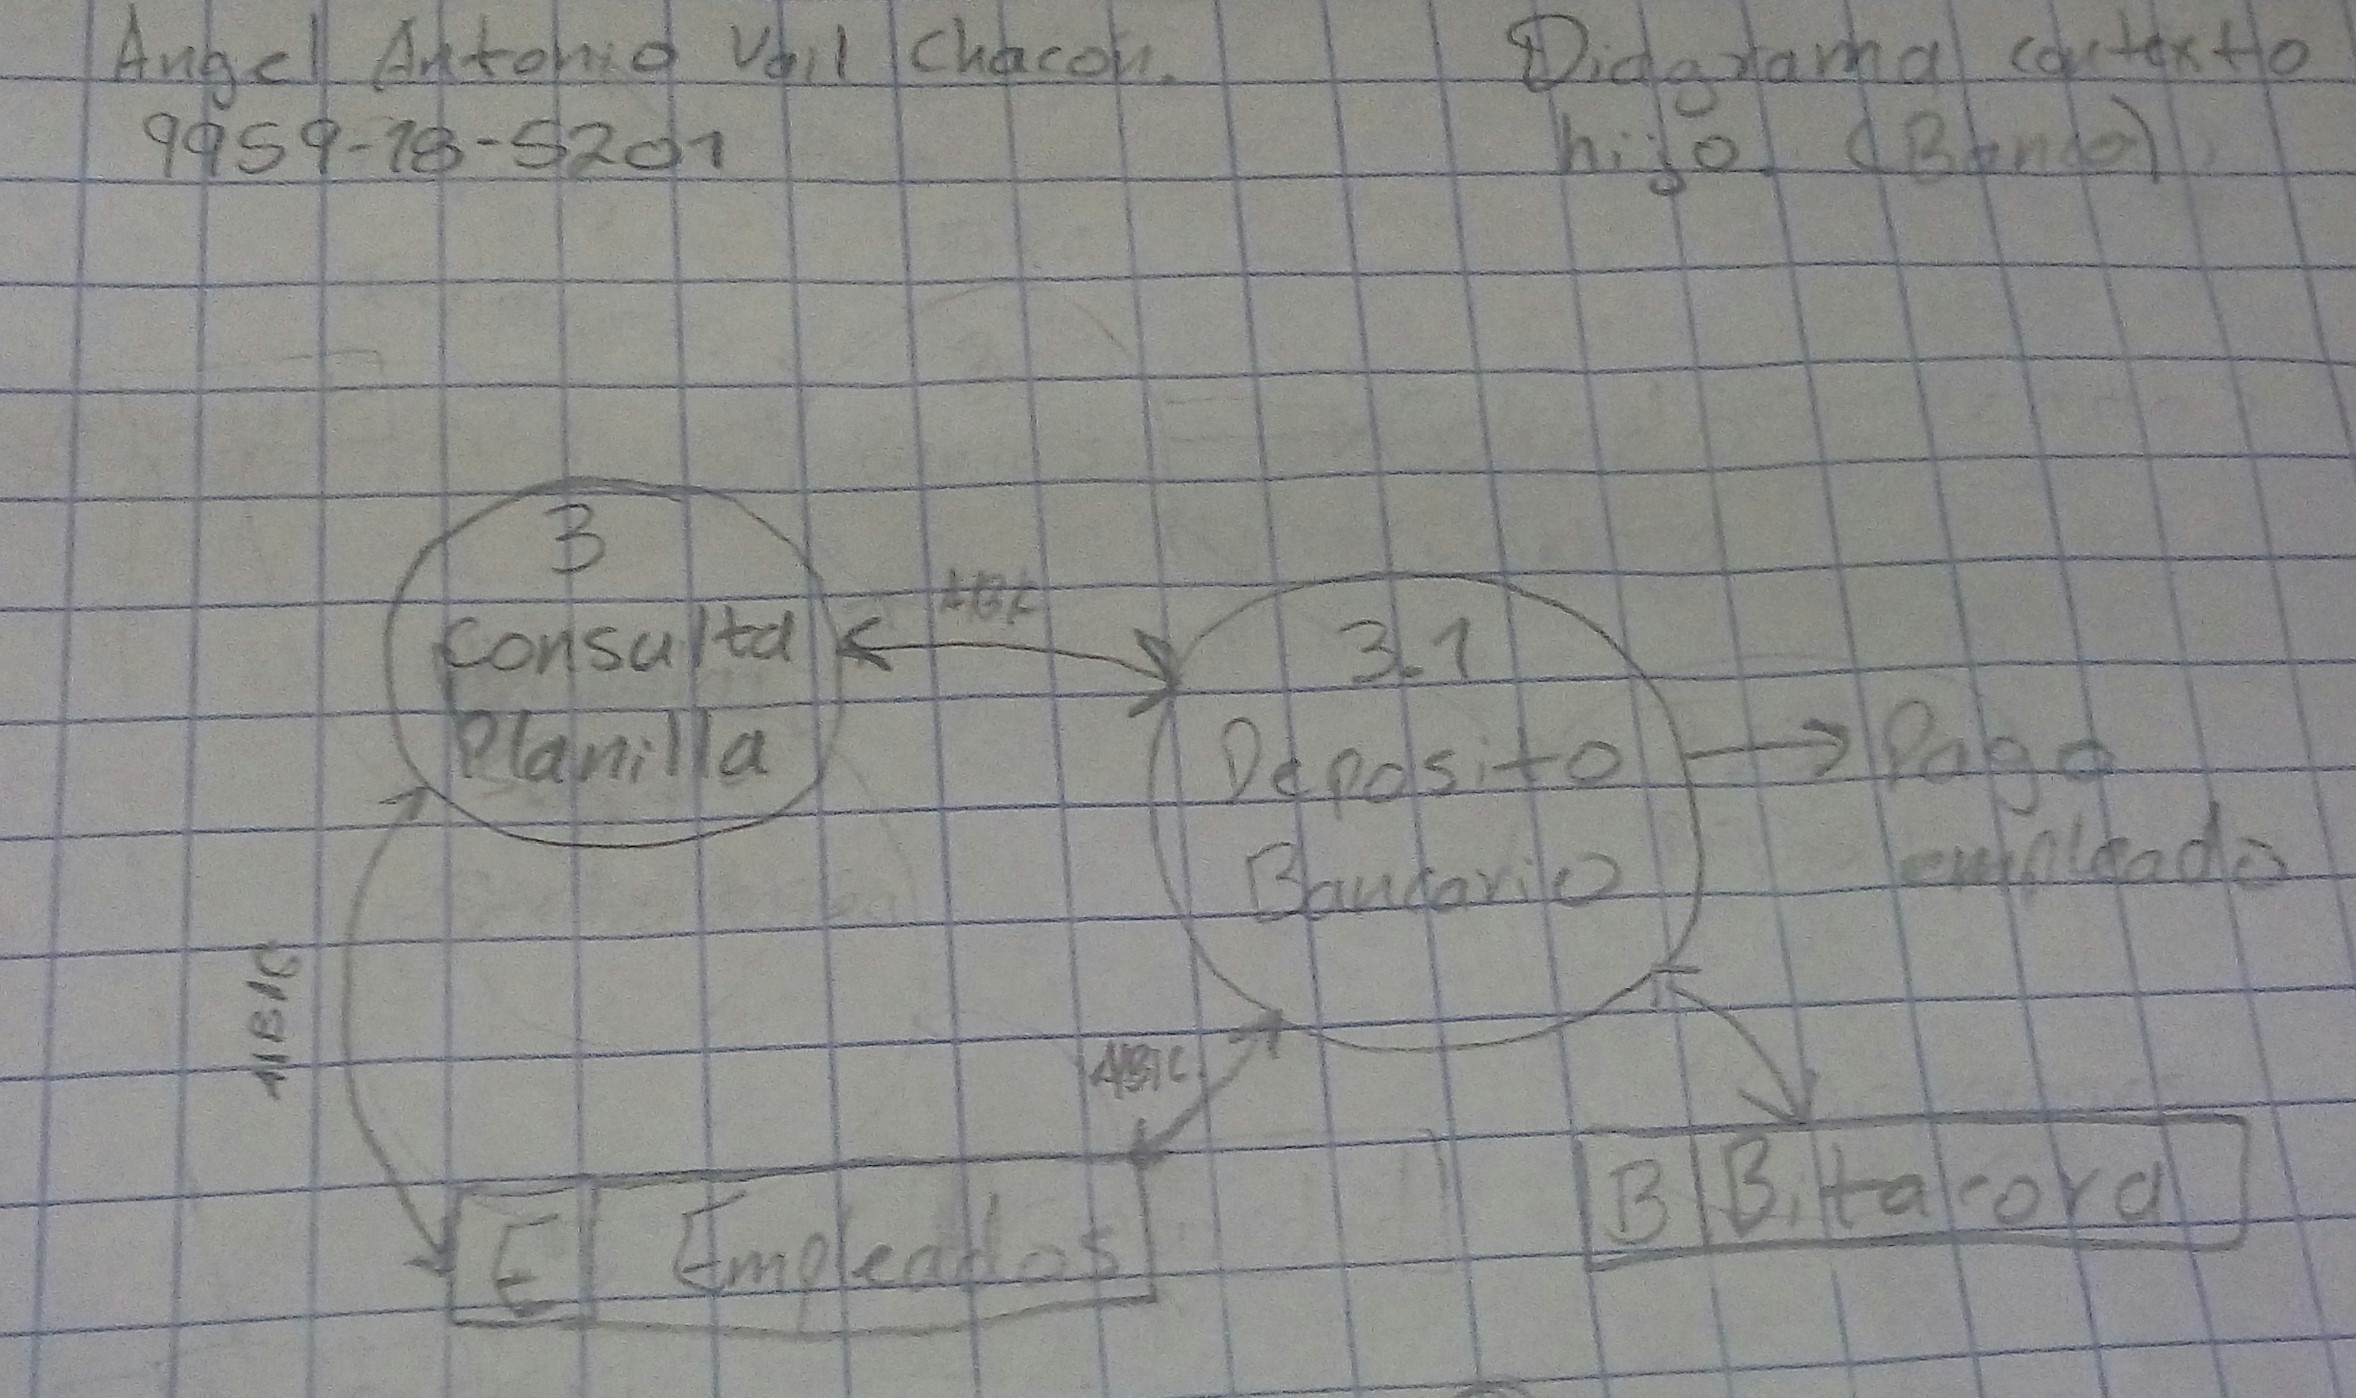 Angel Antonio Vail Chacon.
9959-18-5201
Diagrama contexto
hijo. (Banco)
3
Consulta
Planilla
3.1
Deposito
Bancario
Pago
empleado
ABIC
E Empleados
B Bitacora